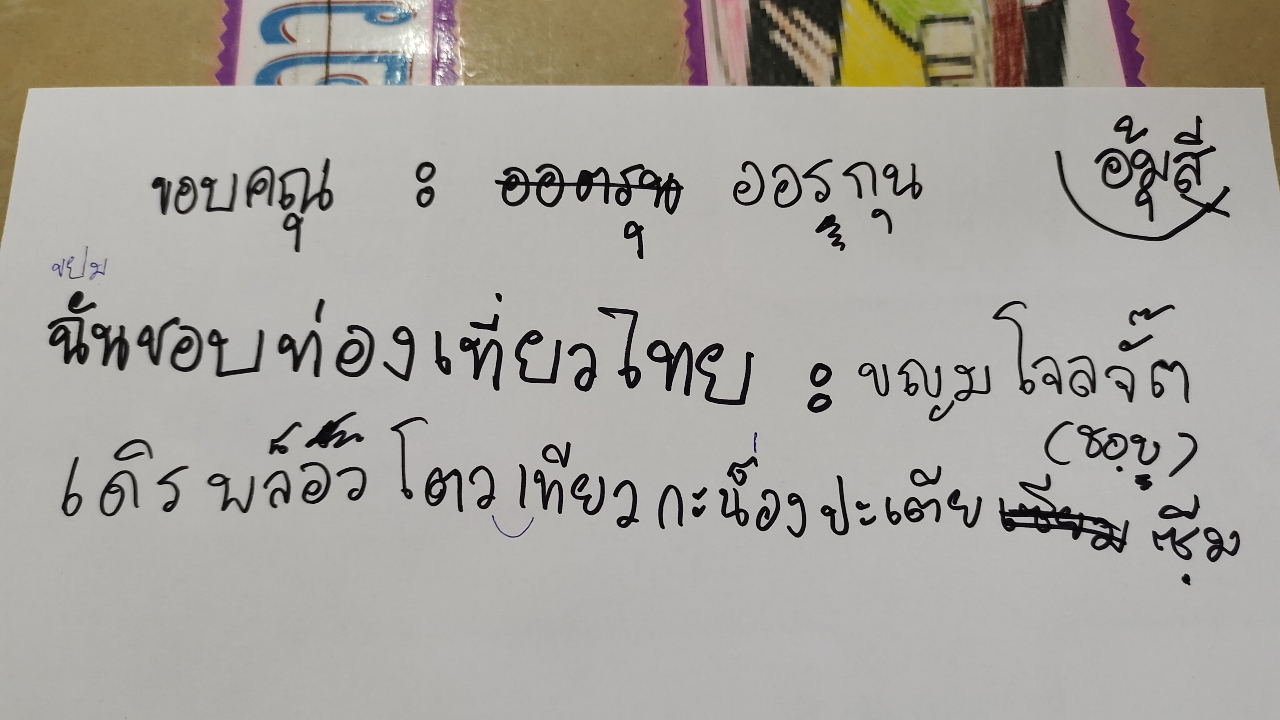 ขอบคุณ : ออรฺกุน อุ้มสี
ขยม
ฉันชอบท่องเที่ยวไทย : ขญุมโจลจั๊ต
(ชอฺบู)
เดิร พล้อว โตวเทียว กะน็่อง ปะเตีย ซีุม